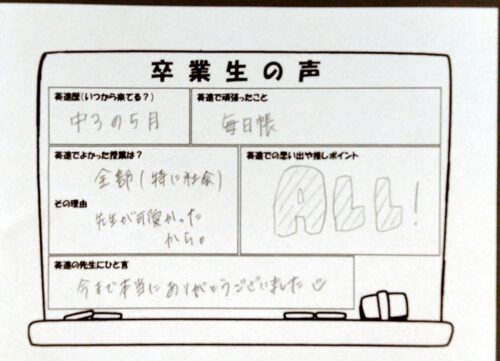 卒業生の声
英進歴(いつから来てる?)
中3の5月
英進で頑張ったこと
毎日帳
英進でよかった授業は?
全部(特に社会)
その理由
先生が可愛かった
から。
英進での思い出や推しポイント
ALL!
英進の先生にひと言
今まで本当にありがとうございました